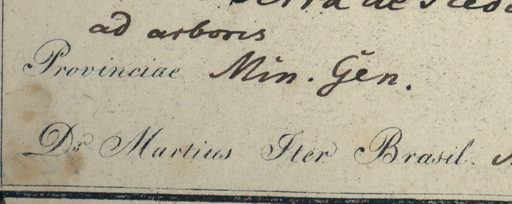 Serra de Piedade
ad arbores
Provinciae Min. Gën.
Dr. Martius Iter Brasil.